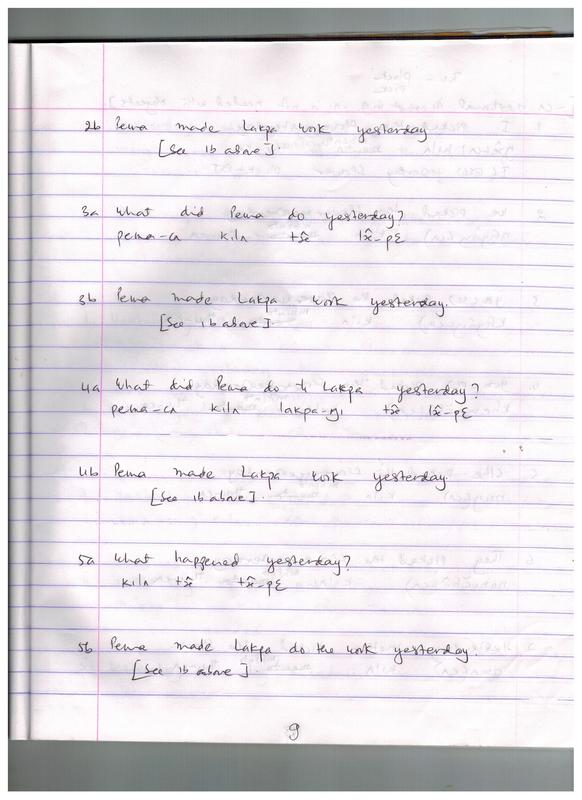 2b Pema made Lakpa work yesterday
[See 1b above].
3a What did Pema do yesterday?
pema-ca kilʌ tsx̂ lx̂-pɛ
3b Pema made Lakpa work yesterday.
[See 1b above]
4a What did Pema do to Lakpa yesterday?
pema-ca kilʌ lakpa-ŋı lx̂-pɛ
4b Pema made Lakpa work yesterday.
[See 1b above].
5a What happened yesterday?
kilʌ
5b Pema made Lakpa do the work yesterday.
[See 1b above].
9